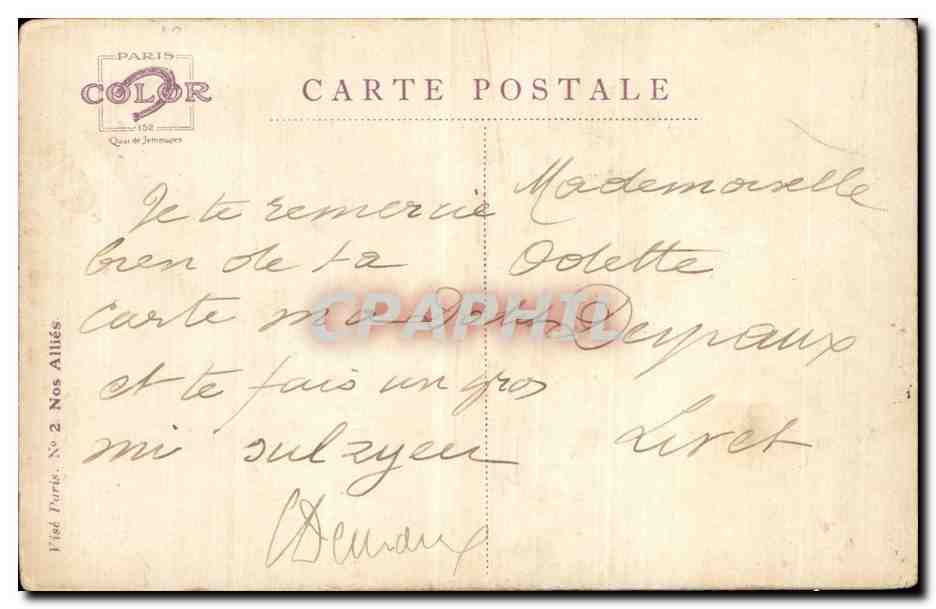 PARIS
COLOR
152
Quai de Jemmapes
CARTE POSTALE
Visé Paris. Nº 2. Nos Alliés
Je te remercie
bien de ta
carte ma
et te fais un gros
mi sulzyeu
Mademoiselle
Odette
Depaux
Livet
CPAPHIL